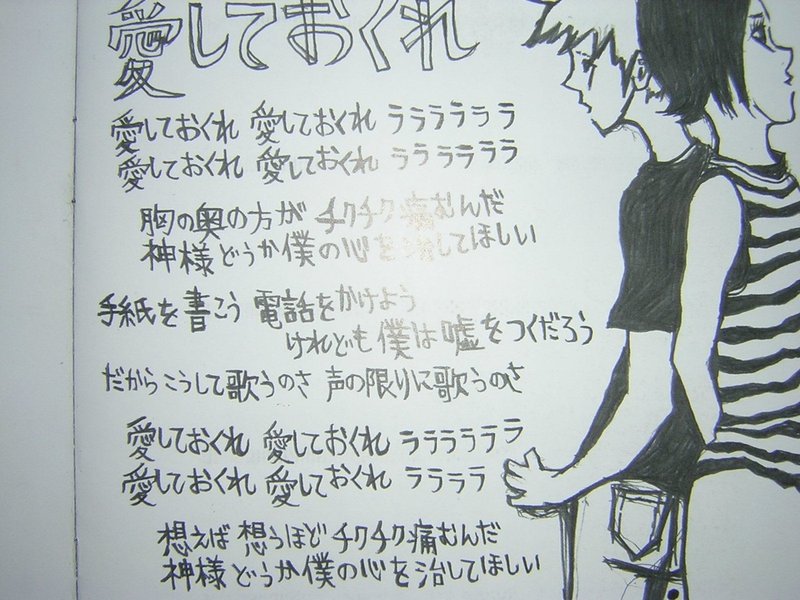 愛しておくれ
愛しておくれ 愛しておくれ ラララララ
愛しておくれ 愛しておくれ ラララララ
胸の奥の方が チクチク痛むんだ
神様どうか僕の心を治してほしい
手紙を書こう 電話をかけよう
けれども僕は嘘をつくだろう
だからこうして歌うのさ 声の限りに歌うのさ
愛しておくれ 愛しておくれ ラララララ
愛しておくれ 愛しておくれ ララララ
想えば想うほどチクチク痛むんだ
神様どうか僕の心を治してほしい